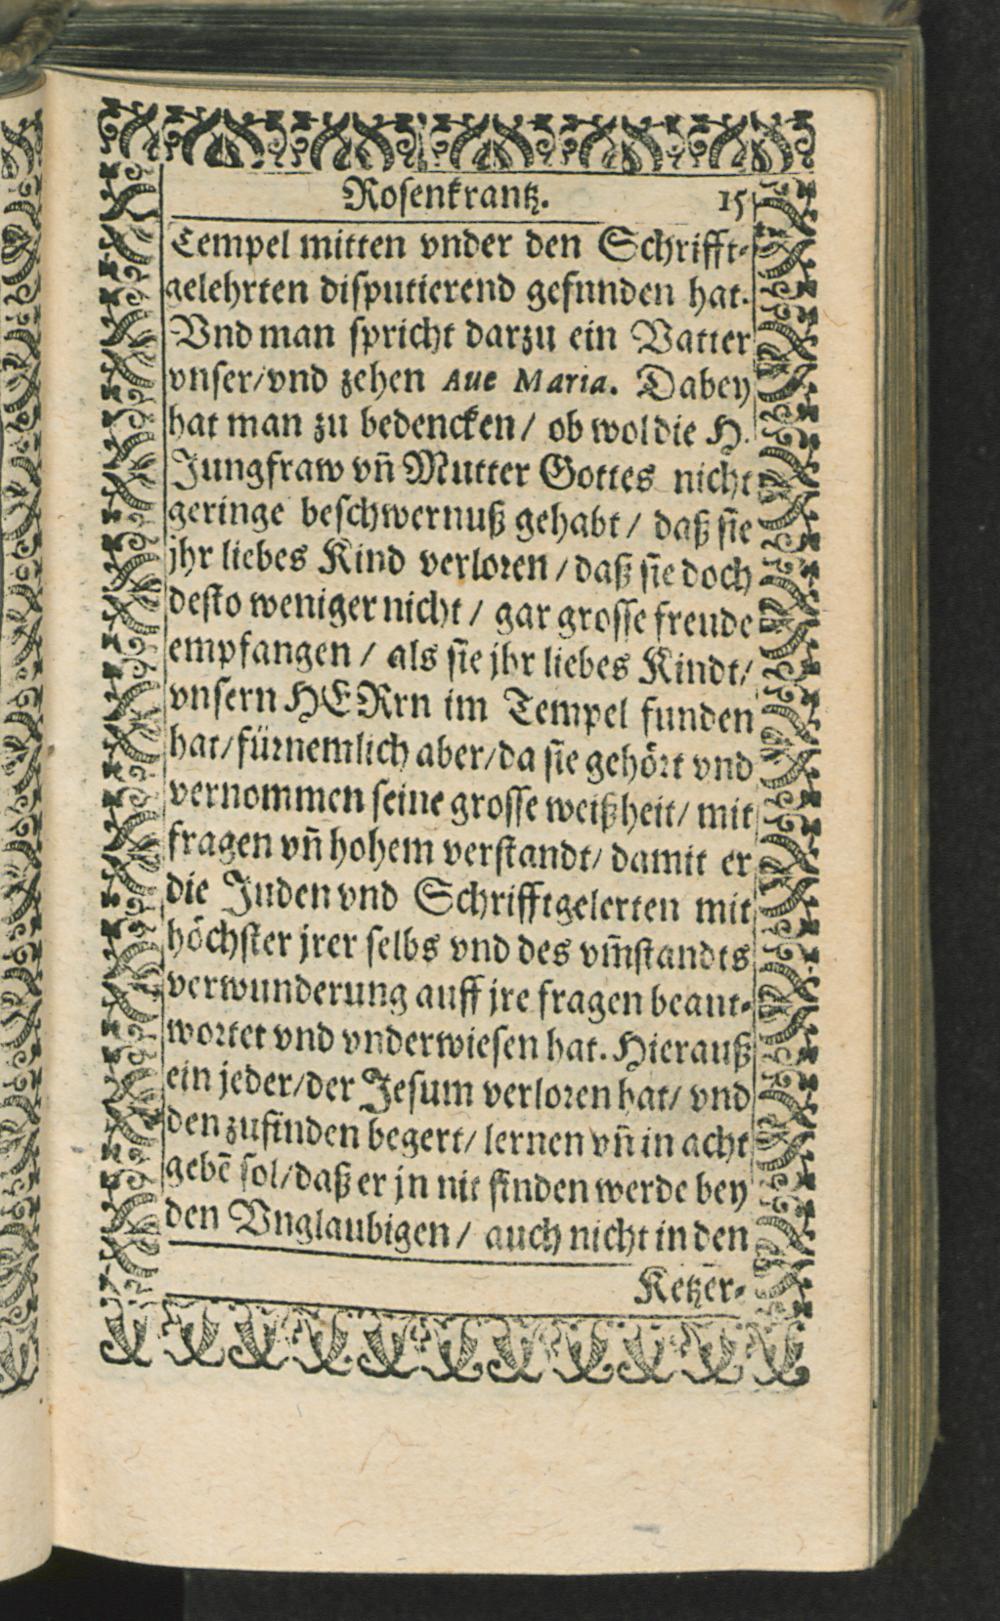 Rosenkrantz. 15
Tempel mitten vnder den Schrifft-
gelehrten disputierend gefunden hat.
Vnd man spricht darzu ein Vatter
vnser/vnd zehen Aue Maria. Dabey
hat man zu bedencken/ ob wol die H.
Jungfraw vn̄ Mutter Gottes nicht
geringe beschwernuß gehabt/ daß sie
jhr liebes Kind verloren/daß sie doch
desto weniger nicht/ gar grosse freude
empfangen/ als sie jhr liebes Kindt/
vnsern HERrn im Tempel funden
hat/fürnemlich aber/da sie gehört vnd
vernommen seine grosse weißheit/ mit
fragen vn̄ hohem verstandt/ damit er
die Juden vnd Schrifftgelerten mit
höchster jrer selbs vnd des vm̄standts
verwunderung auff jre fragen beant-
wortet vnd vnderwiesen hat. Hierauß
ein jeder/der Jesum verloren hat/ vnd
den zufinden begert/ lernen vn̄ in acht
gebē sol/daß er jn nit finden werde bey
den Vnglaubigen/ auch nicht in den
Ketzer-